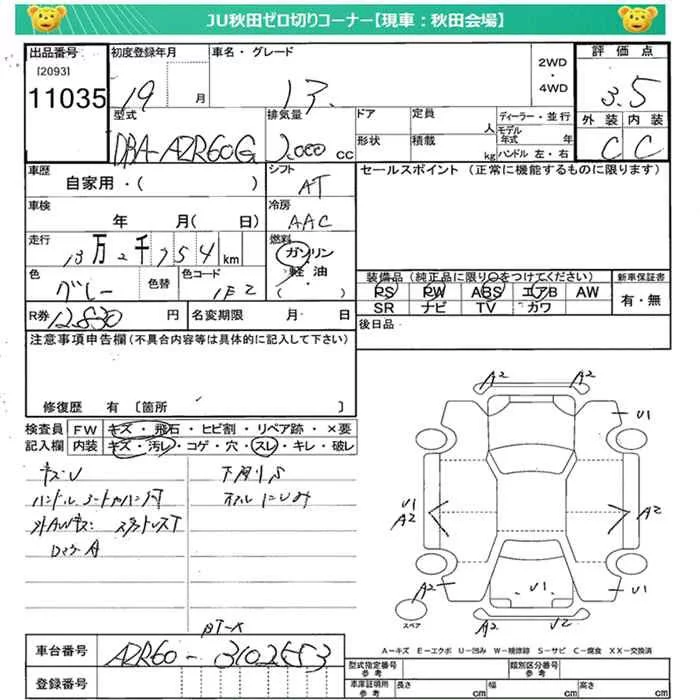 JU秋田ゼロ切りコーナー【現車：秋田会場】
出品番号 初度登録年月 車名・グレード 2WD・4WD 評価点
[2093]
11035 19 月 13. 3.5
型式 排気量 ドア 定員 人 ディーラー・並行 外装 内装
モデル年式 年
DBA-AZR60G 2,000 cc 形状 積載 kg ハンドル 左・右 C C
車歴 シフト セールスポイント（正常に機能するものに限ります）
自家用・（ ） AT
車検 冷房
年 月（ 日） AAC
走行 燃料
13万2千754km ガソリン
色 色替 色コード 軽油
グレー 1E2 （・）
装備品（純正品に限り○をつけてください） 新車保証書
PS PW ABS エアB AW 有・無
SR ナビ TV カワ
R券 12,830 円 名変期限 月 日 後日品
注意事項申告欄（不具合内容等は具体的に記入して下さい）
修復歴 有〔箇所 〕
検査員 FW キズ・飛石・ヒビ割・リペア跡・×要
記入欄 内装 キズ・汚レ・コゲ・穴・スレ・キレ・破レ
キズU 下廻りS
オイルにじみ
A2 A2 U1
U1 A2 A2
A2 U1 U1
スペア A2 U2
A－キズ E－エクボ U－凹み W－補修跡 S－サビ C－腐食 XX－交換済
車台番号 AZR60-3102653
登録番号
型式指定番号 参考 類別区分番号 参考
車庫証明用 参考 長さ cm 幅 cm 高さ cm